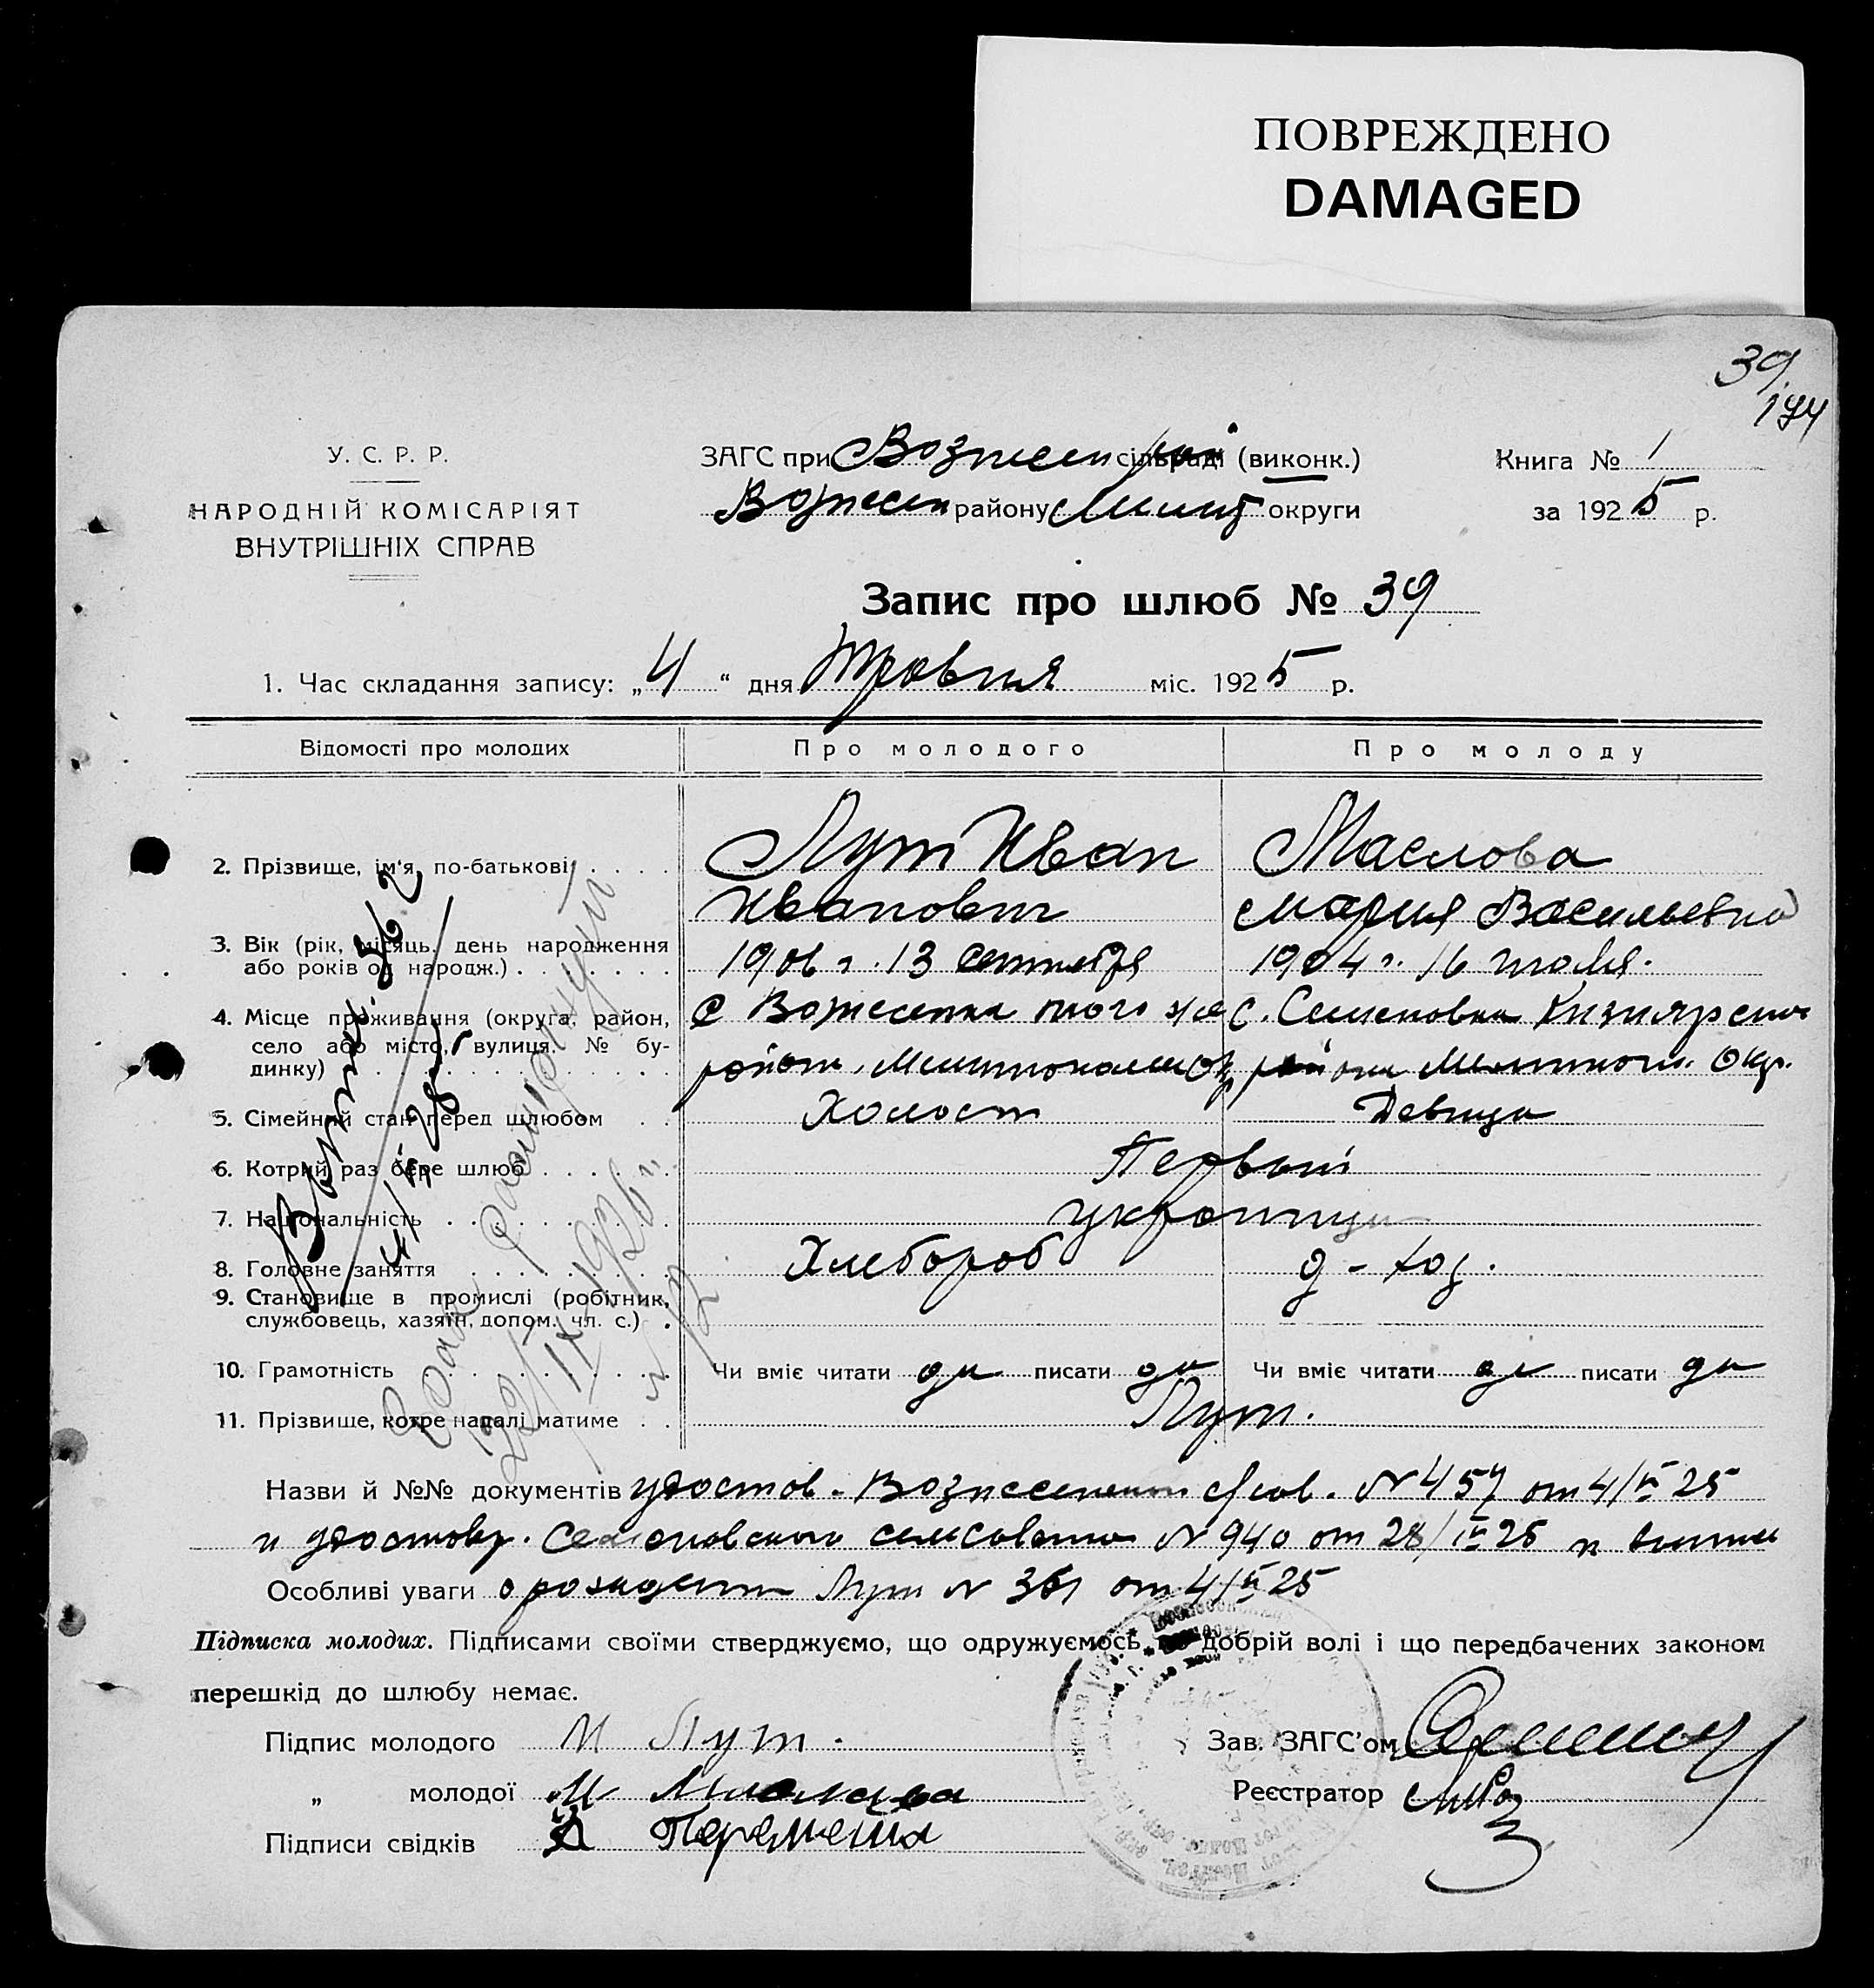 ПОВРЕЖДЕНО
DAMAGED
39
174
У. С. Р. Р.
НАРОДНІЙ КОМІСАРІЯТ
ВНУТРІШНІХ СПРАВ
ЗАГС при Вознесен сільраді (виконк.)
Вознесен району Мелит округи
Книга № 1
за 1925 р.
Запис про шлюб № 39
1. Час складання запису: „4“ дня Травня міс. 1925 р.
Відомості про молодих
Про молодого
Про молоду
2. Прізвище, ім'я, по-батькові
Лут Иван
Иванович
Маслова
Мария Васильевна
3. Вік (рік, місяць, день народження
або років од народж.)
1906 г. 13 сентября
1904 г. 16 июля.
4. Місце проживання (округа, район,
село або місто, вулиця. № бу-
динку)
с Вознесенка того же
район. Мелитопольск Окр
с. Семеновка Кизиярского
района Мелитопол. Окр.
5. Сімейний стан перед шлюбом
Холост
Девица
6. Котрий раз бере шлюб
Первый
7. Національність
украинцы
8. Головне заняття
Хлебороб
д-хоз.
9. Становище в промислі (робітник,
службовець, хазяїн, допом. чл. с.)
10. Грамотність
Чи вміє читати да писати да
Чи вміє читати да писати да
11. Прізвище, котре надалі матиме
Лут.
Назви й №№ документів удостов. Вознесенского с/сов. № 457 от 4/V 25
и удостовер. Семеновского сельсовета № 940 от 28/IV 25 и выписи
Особливі уваги о рождении Лут № 361 от 4/V 25
Підписка молодих. Підписами своїми стверджуємо, що одружуємось по добрій волі і що передбачених законом
перешкід до шлюбу немає.
Підпис молодого И Лут.
„ молодої М Маслова
Підписи свідків
Зав. ЗАГС'ом
Реєстратор
22/IX 1926 г.
№ 12